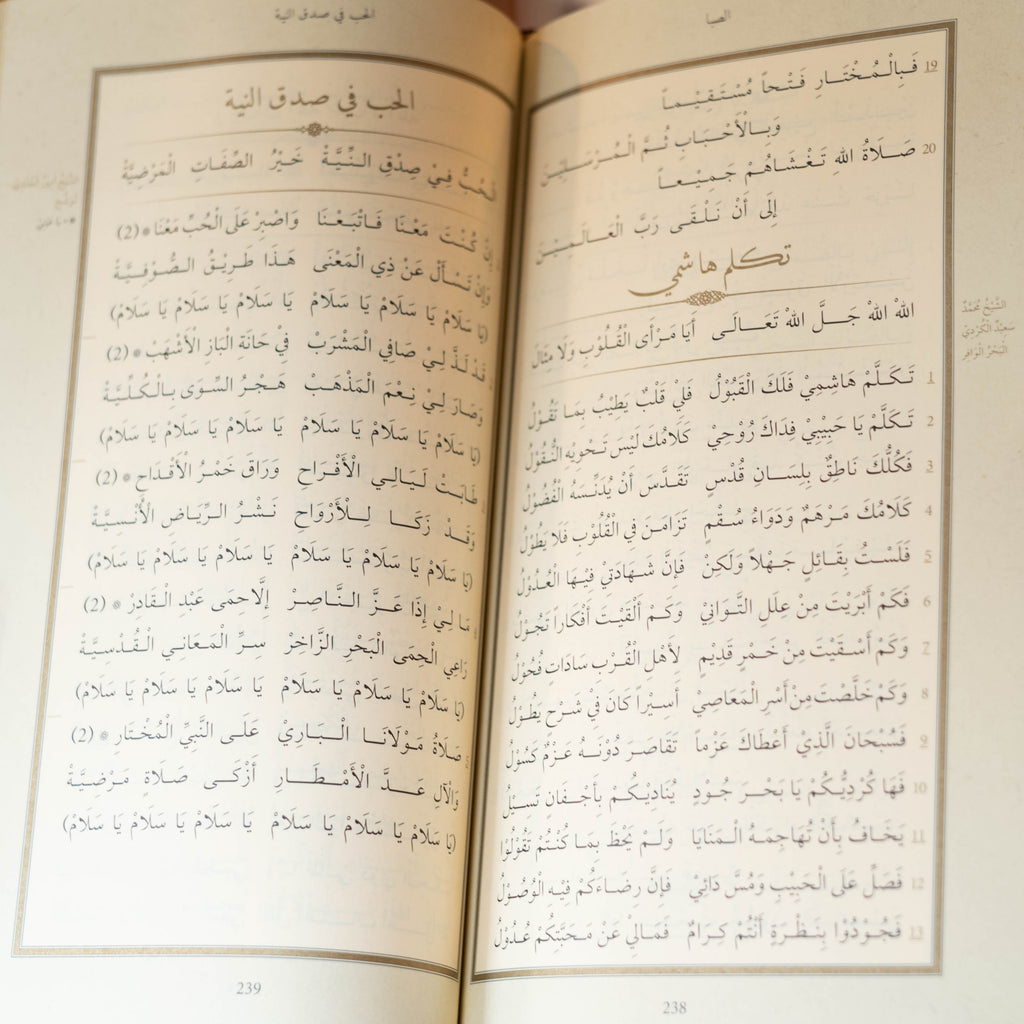 الصبا
19 فَبِالْمُخْتَارِ فَتْحاً مُسْتَقِيْماً
وَبِالْأَحْبَابِ ثُمَّ الْمُرْسَلِيْنَ
20 صَلَاةُ اللهِ تَغْشَاهُمْ جَمِيْعاً
إِلَى أَنْ نَلْقَى رَبَّ الْعَالَمِيْنَ
تكلم هاشمي
اللهُ اللهُ جَلَّ اللهُ تَعَالَى أَيَا مَرْأَى الْقُلُوْبِ وَلَا مِثَالَ
الشَّيْخُ مُحَمَّدْ
سَعِيْدُ الْكُرْدِيْ
الْبَحْرُ الْوَافِر
1 تَكَلَّمْ هَاشِمِيْ فَلَكَ الْقَبُوْلُ فَلِيْ قَلْبٌ يَطِيْبُ بِمَا تَقُوْلُ
2 تَكَلَّمْ يَا حَبِيْبِيْ فِدَاكَ رُوْحِيْ كَلَامُكَ لَيْسَ تَحْوِيْهِ النُّقُوْلُ
3 فَكُلُّكَ نَاطِقٌ بِلِسَانِ قُدْسٍ تَقَدَّسَ أَنْ يُدَنِّسَهُ الْفُضُوْلُ
4 كَلَامُكَ مَرْهَمٌ وَدَوَاءُ سُقْمٍ تَزَامَنَ فِي الْقُلُوْبِ فَلَا يَطُوْلُ
5 فَلَسْتُ بِقَائِلٍ جَهْلاً وَلَكِنْ فَإِنَّ شَهَادَتِيْ فِيْهَا الْعُدُوْلُ
6 فَكَمْ أَبْرَيْتَ مِنْ عِلَلِ التَّوَانِيْ وَكَمْ أَلْقَيْتَ أَفْكَاراً تَجُوْلُ
7 وَكَمْ أَسْقَيْتَ مِنْ خَمْرٍ قَدِيْمٍ لِأَهْلِ الْقُرْبِ سَادَاتٍ فُحُوْلُ
8 وَكَمْ خَلَّصْتَ مِنْ أَسْرِ الْمَعَاصِيْ أَسِيْراً كَانَ فِيْ شَرْحٍ يَطُوْلُ
9 فَسُبْحَانَ الَّذِيْ أَعْطَاكَ عَزْماً تَقَاصَرَ دُوْنَهُ عَزْمٌ كَسُوْلُ
10 فَهَا كُرْدِيُّكُمْ يَا بَحْرَ جُوْدٍ يُنَادِيْكُمْ بِأَجْفَانٍ تَسِيْلُ
11 يَخَافُ بِأَنْ تُهَاجِمَهُ الْمَنَايَا وَلَمْ يَحْظَ بِمَا كُنْتُمْ تَقُوْلُوْا
12 فَصَلِّ عَلَى الْحَبِيْبِ وَمُسَّ دَائِيْ فَإِنَّ رِضَاءَكُمْ فِيْهِ الْوُصُوْلُ
13 فَجُوْدُوْا بِنَظْرَةٍ أَنْتُمْ كِرَامٌ فَمَالِيْ عَنْ مَحَبَّتِكُمْ عُدُوْلُ
238
الحب في صدق النية
الحب في صدق النية
الْحُبُّ فِيْ صِدْقِ النِّيَّةْ خَيْرُ الصِّفَاتِ الْمَرْضِيَّةْ
إِنْ كُنْتَ مَعْنَا فَاتْبَعْنَا وَاصْبِرْ عَلَى الْحُبِّ مَعْنَا * (2)
وَإِنْ تَسْأَلْ عَنْ ذِي الْمَعْنَى هَذَا طَرِيْقُ الصُّوْفِيَّةْ
(يَا سَلَامْ يَا سَلَامْ يَا سَلَامْ يَا سَلَامْ يَا سَلَامْ يَا سَلَامْ)
قَدْ لَذَّ لِيْ صَافِي الْمَشْرَبْ فِيْ حَانَةِ الْبَازِ الْأَشْهَبْ * (2)
وَصَارَ لِيْ نِعْمَ الْمَذْهَبْ هَجْرُ السِّوَى بِالْكُلِّيَّةْ
(يَا سَلَامْ يَا سَلَامْ يَا سَلَامْ يَا سَلَامْ يَا سَلَامْ يَا سَلَامْ)
طَابَتْ لَيَالِي الْأَفْرَاحِ وَرَاقَ خَمْرُ الْأَقْدَاحِ * (2)
وَقَدْ زَكَا لِلْأَرْوَاحِ نَشْرُ الرِّيَاضِ الْأُنْسِيَّةْ
(يَا سَلَامْ يَا سَلَامْ يَا سَلَامْ يَا سَلَامْ يَا سَلَامْ يَا سَلَامْ)
مَا لِيْ إِذَا عَزَّ النَّاصِرْ إِلَّا حِمَى عَبْدِ الْقَادِرْ * (2)
رَاعِي الْحِمَى الْبَحْرِ الزَّاخِرْ سِرِّ الْمَعَانِي الْقُدْسِيَّةْ
(يَا سَلَامْ يَا سَلَامْ يَا سَلَامْ يَا سَلَامْ يَا سَلَامْ يَا سَلَامْ)
صَلَاةُ مَوْلَانَا الْبَارِيْ عَلَى النَّبِيِّ الْمُخْتَارِ * (2)
وَالْآلِ عَدَّ الْأَمْطَارِ أَزْكَى صَلَاةٍ مَرْضِيَّةْ
(يَا سَلَامْ يَا سَلَامْ يَا سَلَامْ يَا سَلَامْ يَا سَلَامْ يَا سَلَامْ)
239